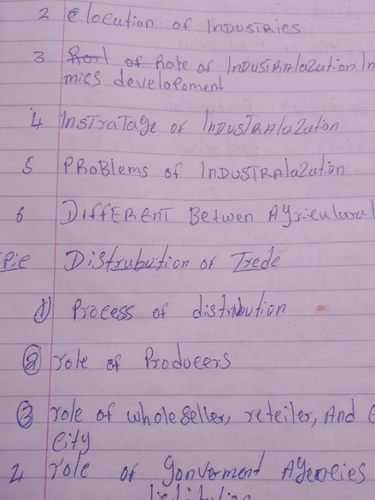 2 elocution of INDUSTRies
3 Rool of Rote of INDUSTRALaZation In
mics development
4 INSTraTage of INDUSTRALaZation
5 PRoBlems of INDUSTRALaZation
6 DiffERENT Betwen Agricultural
Pic Distrubution of Trede
① Process of distribution
② role of Producers
③ role of wholeseller, reteiler, And
City
4 role of Gonverment Agencies